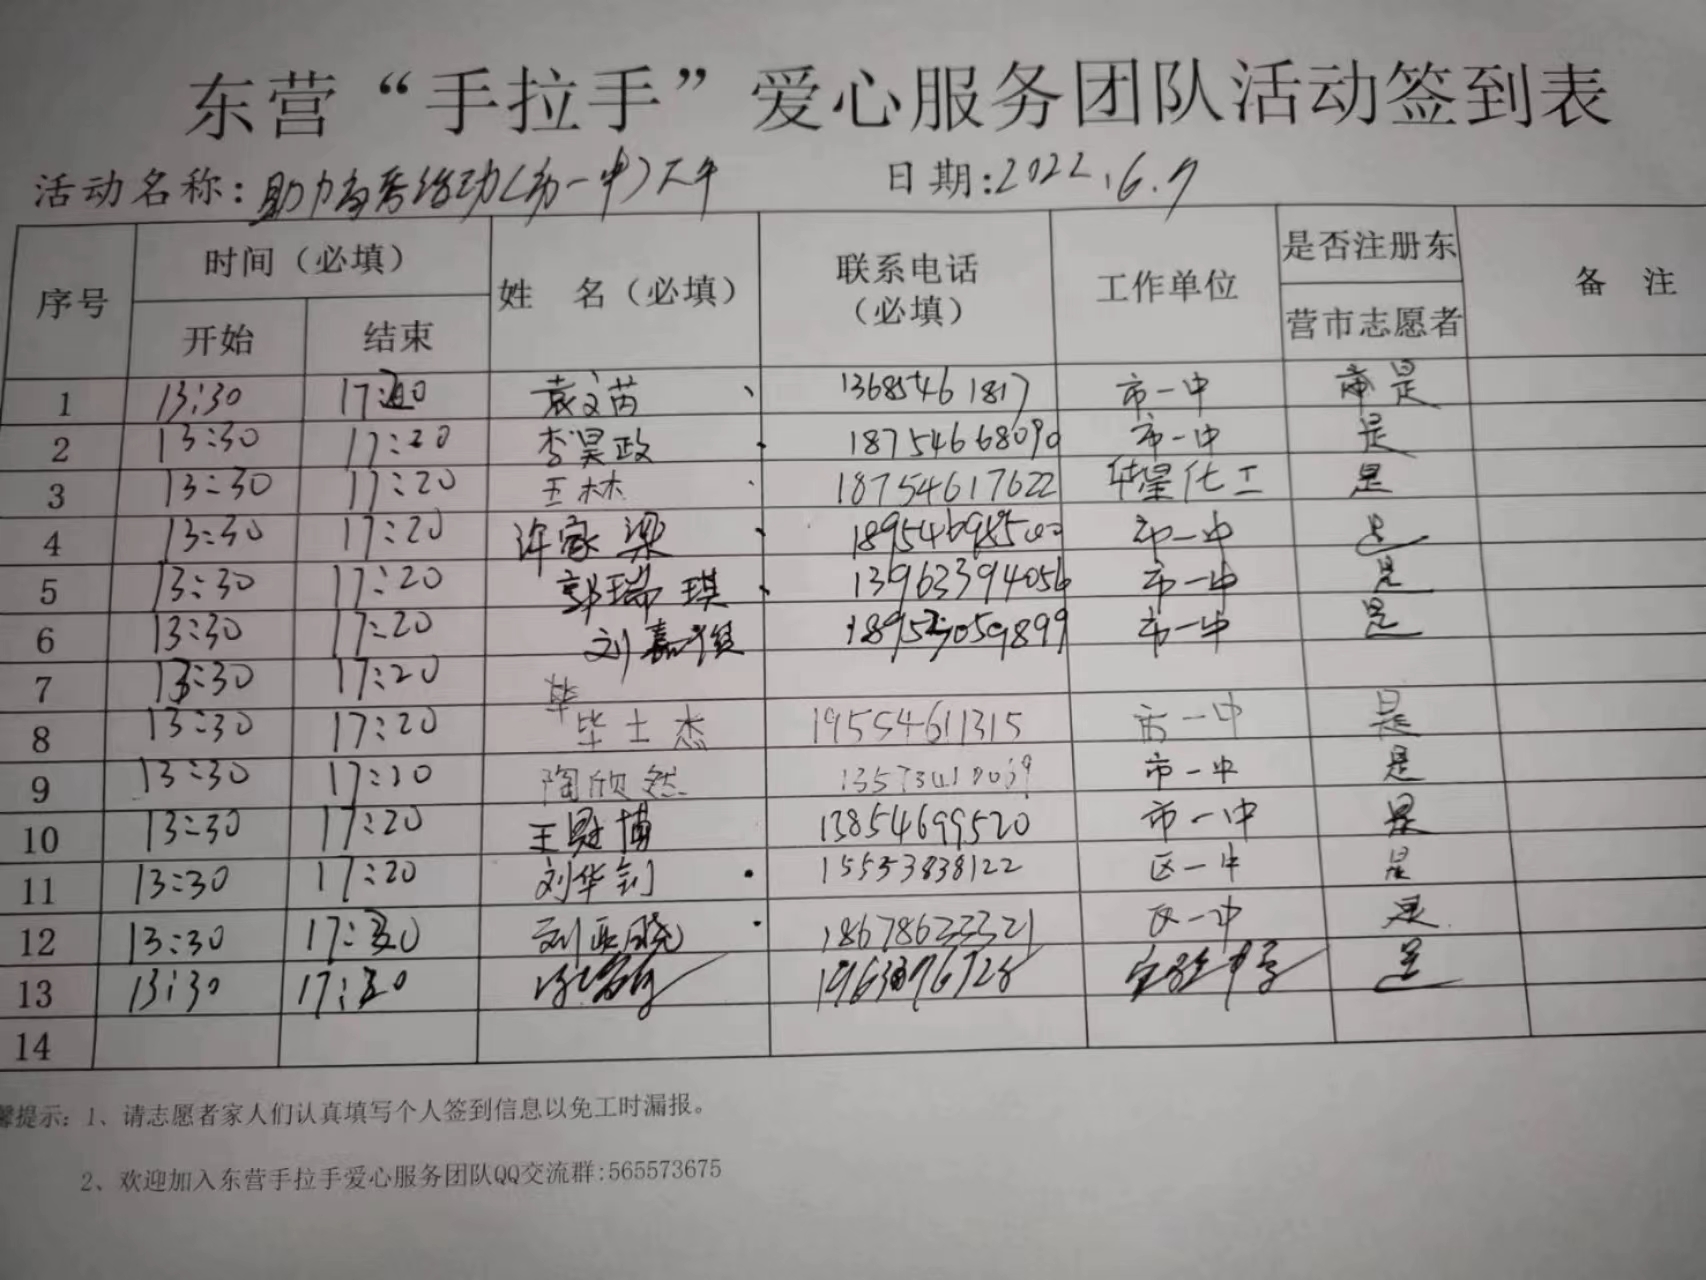 东营“手拉手”爱心服务团队活动签到表
活动名称:助力高考活动(市一中)下午 日期:2022.6.7
序号 时间（必填） 姓 名（必填） 联系电话（必填） 工作单位 是否注册东营市志愿者 备 注
开始 结束
1 13:30 17:20 袁文芮 13685461817 市一中 是
2 13:30 17:20 李昊政 18754668090 市一中 是
3 13:30 17:20 王林 18754617622 华星化工 是
4 13:30 17:20 许家梁 18954698500 市一中 是
5 13:30 17:20 郭瑞琪 13963394056 市一中 是
6 13:30 17:20 刘嘉 市一中 是
7 13:30 17:20
8 13:30 17:20 毕士杰 19554611315 市一中 是
9 13:30 陶欣然 市一中 是
10 13:30 17:20 王冠博 13854699520 市一中 是
11 13:30 17:20 刘华钊 15553838122 区一中 是
12 13:30 刘 晓 18678633321 区一中 是
13 13:30 实验中学 是
14
馨提示: 1、请志愿者家人们认真填写个人签到信息以免工时漏报。
2、欢迎加入东营手拉手爱心服务团队QQ交流群:565573675